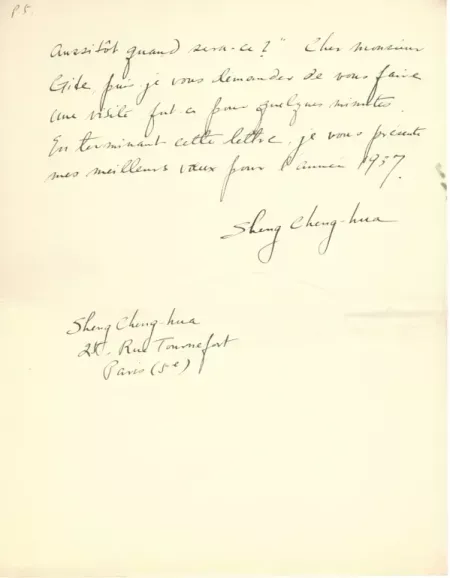 P 5.
Aussitôt quand sera-ce ? " Cher monsieur
Gide, puis je vous demander de vous faire
une visite fut-ce pour quelques minutes.
En terminant cette lettre, je vous présente
mes meilleurs vœux pour l'année 1937.
Sheng Cheng-hua
Sheng Cheng-hua
Rue Tournefort
Paris (5e)